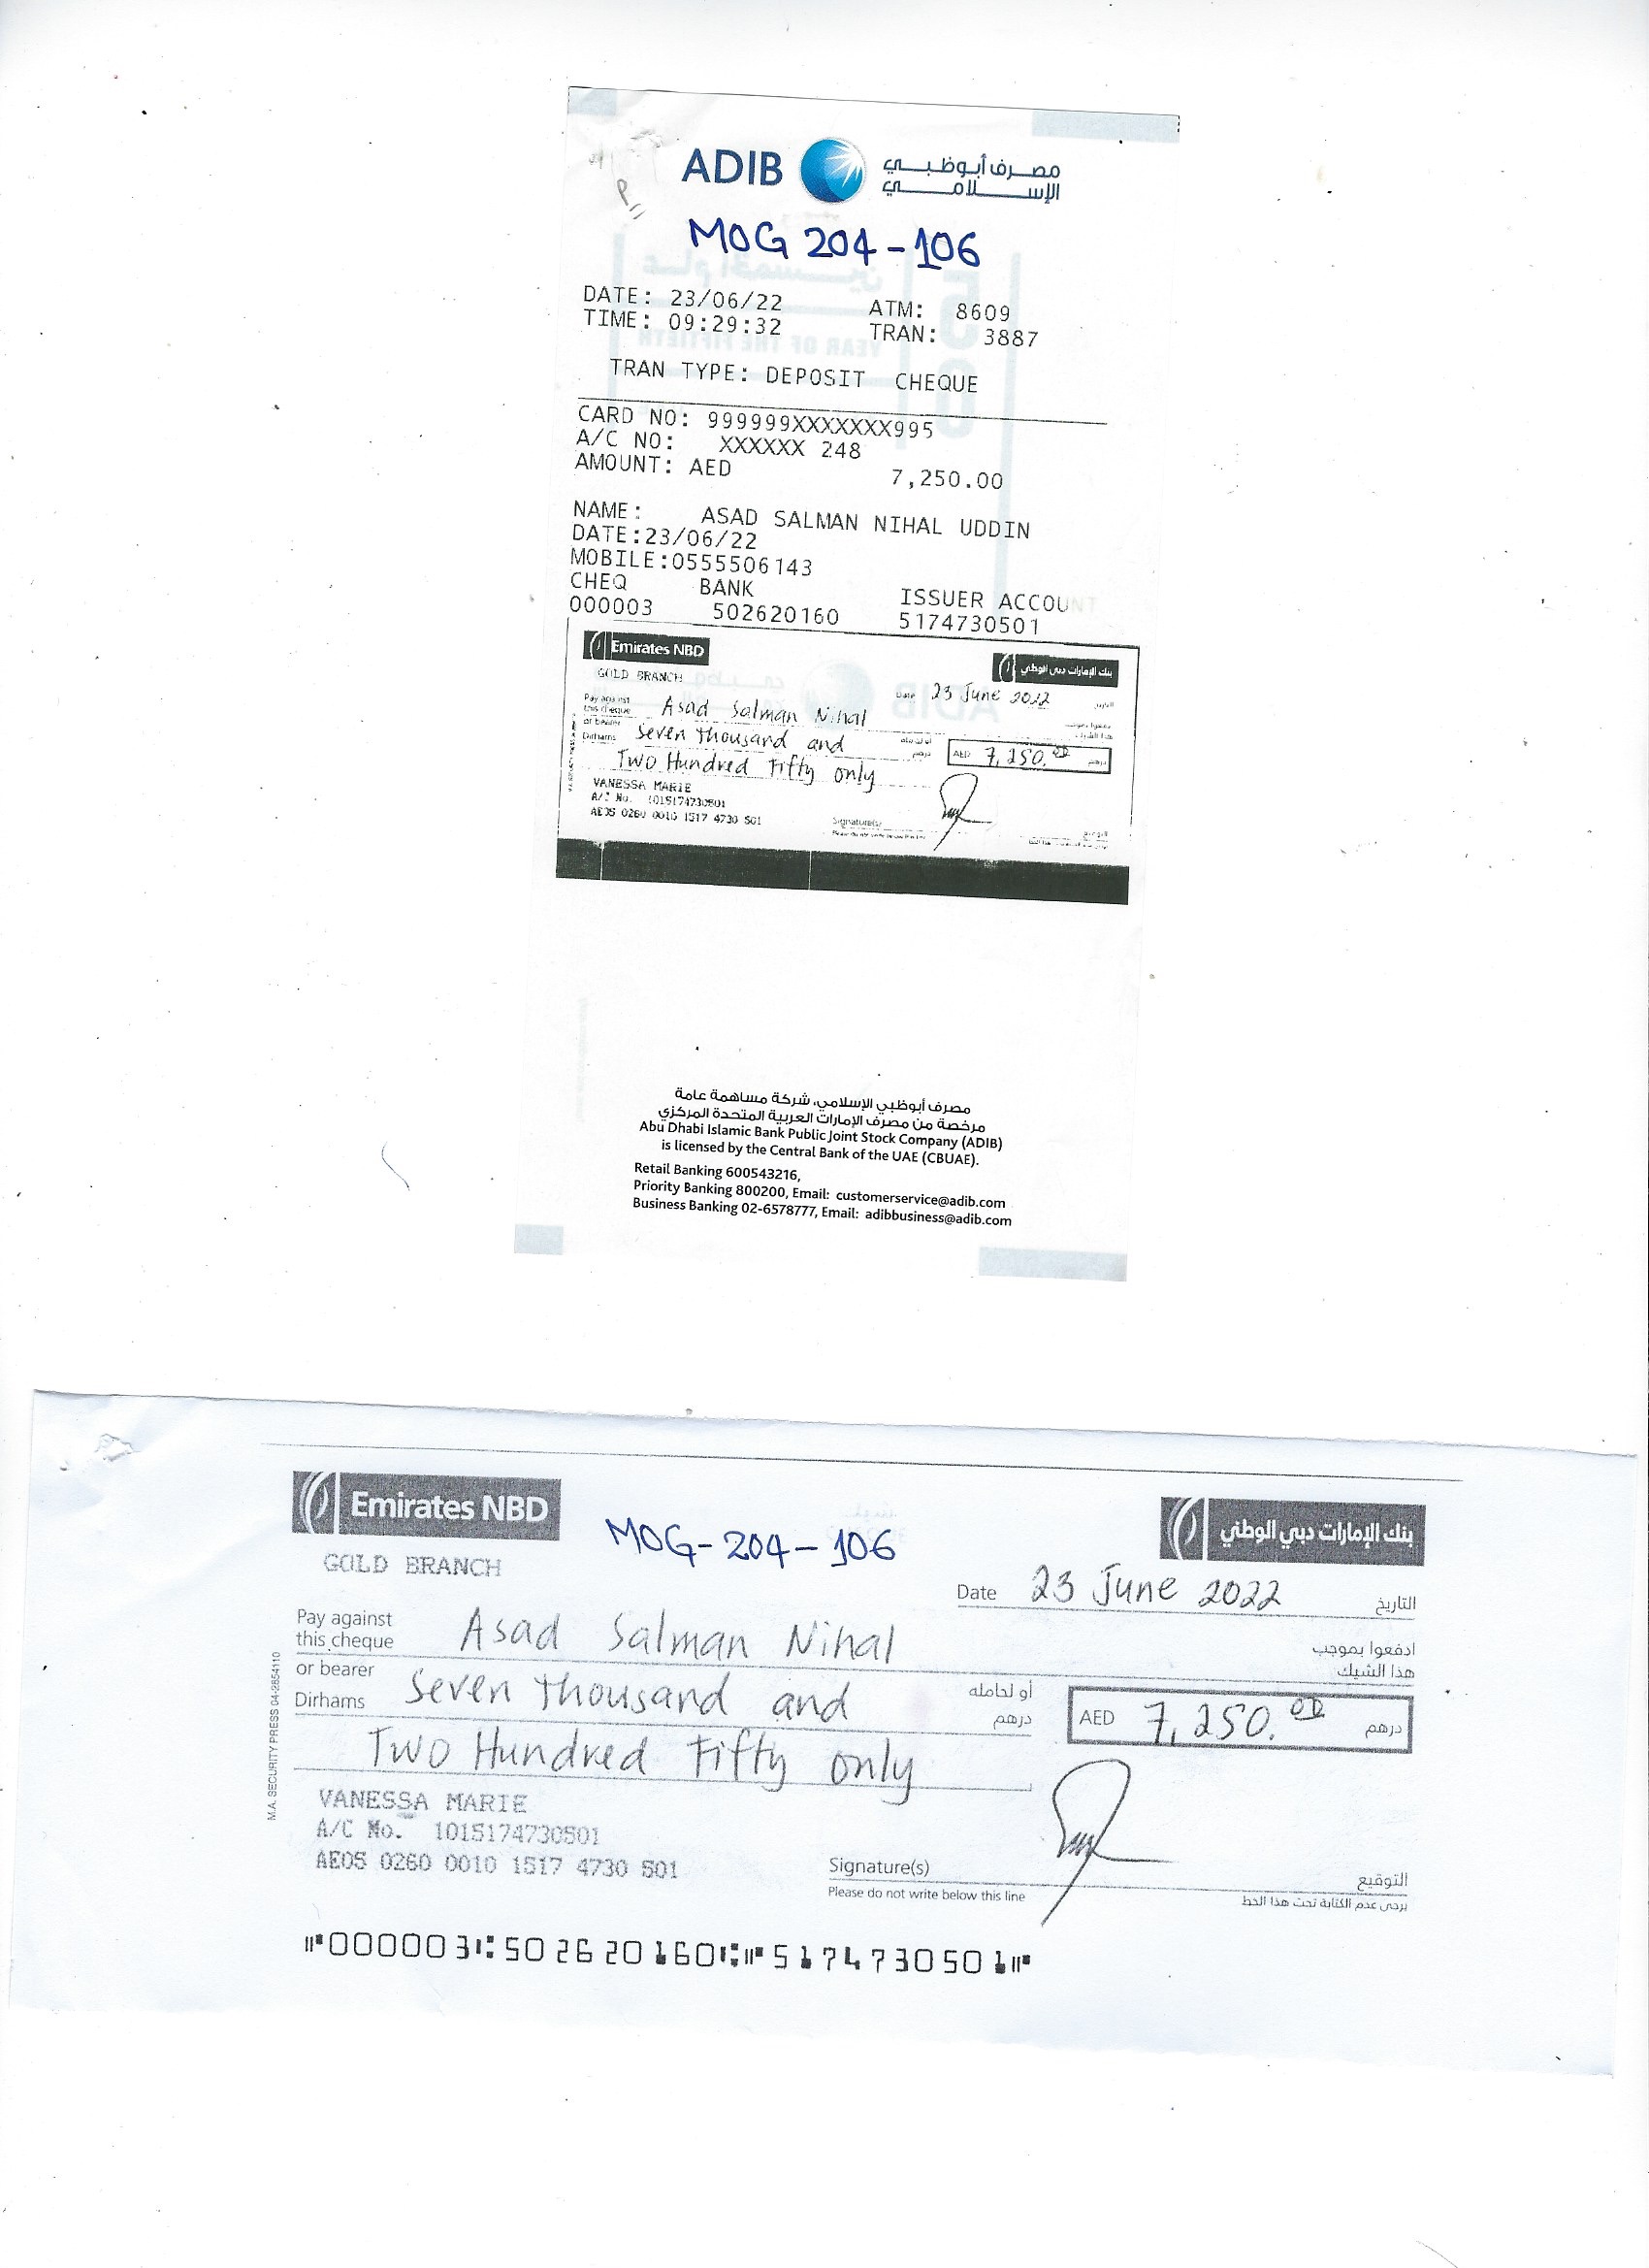 ADIB مصرف أبوظبي
الإسلامي
MOG 204-106
DATE: 23/06/22 ATM: 8609
TIME: 09:29:32 TRAN: 3887
TRAN TYPE: DEPOSIT CHEQUE
CARD NO: 999999XXXXXXX995
A/C NO: XXXXXX 248
AMOUNT: AED 7,250.00
NAME: ASAD SALMAN NIHAL UDDIN
DATE:23/06/22
MOBILE:0555506143
CHEQ BANK ISSUER ACCOUNT
000003 502620160 5174730501
Emirates NBD بنك الإمارات دبي الوطني
GOLD BRANCH
Date 23 June 2022 التاريخ
Pay against
this cheque Asad Salman Nihal
or bearer
Dirhams Seven Thousand and
AED 7,250.00 درهم
Two Hundred Fifty only
VANESSA MARIE
A/C No. 1015174730501
AE05 0260 0010 1517 4730 501
Signature(s)
مصرف أبوظبي الإسلامي، شركة مساهمة عامة
مرخصة من مصرف الإمارات العربية المتحدة المركزي
Abu Dhabi Islamic Bank Public Joint Stock Company (ADIB)
is licensed by the Central Bank of the UAE (CBUAE).
Retail Banking 600543216,
Priority Banking 800200, Email: customerservice@adib.com
Business Banking 02-6578777, Email: adibbusiness@adib.com
Emirates NBD بنك الإمارات دبي الوطني
MOG-204-106
GOLD BRANCH
Date 23 June 2022 التاريخ
Pay against
this cheque Asad Salman Nihal ادفعوا بموجب
هذا الشيك
or bearer
Dirhams Seven Thousand and أو لحامله
درهم
AED 7,250.00 درهم
Two Hundred Fifty only
VANESSA MARIE
A/C No. 1015174730501
AE05 0260 0010 1517 4730 501
Signature(s) التوقيع
Please do not write below this line يرجى عدم الكتابة تحت هذا الخط
M.A. SECURITY PRESS 04-2854110
⑈000003⑆502620160⑆⑈5174730501⑈